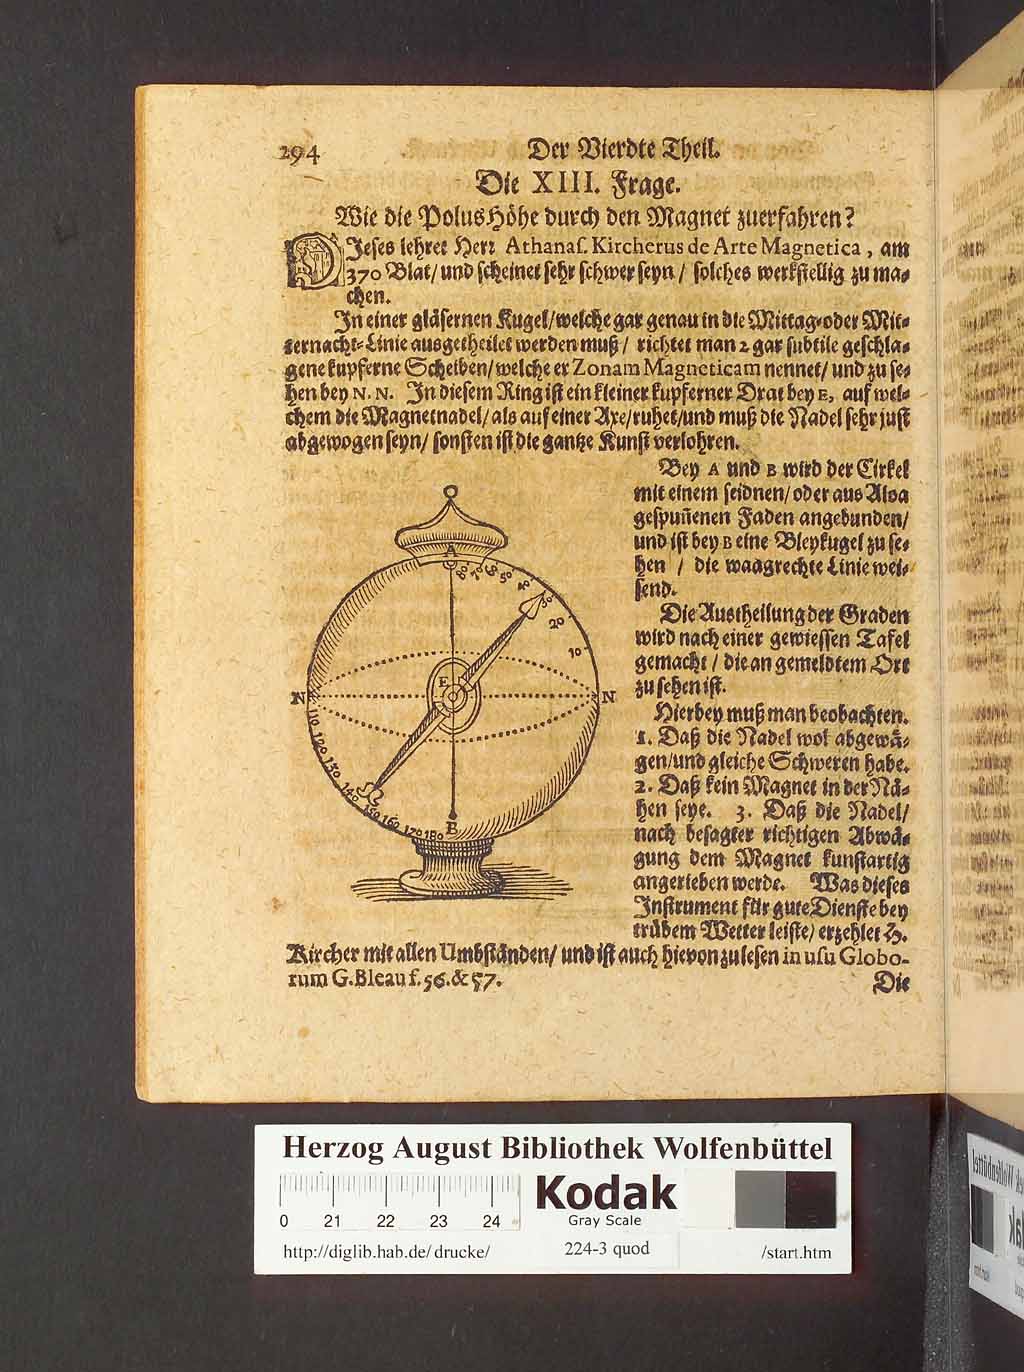 294 Der Vierdte Theil.
Die XIII. Frage.
Wie die Polus Höhe durch den Magnet zuerfahren?
DIeses lehret Herr Athanaſ. Kircherus de Arte Magnetica, am
370 Blat/ und scheinet sehr schwer seyn/ solches werkstellig zu ma-
chen.
In einer gläsernen Kugel/welche gar genau in die Mittag-oder Mit-
ternacht-Linie ausgetheilet werden muß/ richtet man 2 gar subtile geschla-
gene kupferne Scheiben/welche er Zonam Magneticam nennet/ und zu se-
hen bey N. N. In diesem Ring ist ein kleiner kupferner Drat bey E, auf wel-
chem die Magnetnadel/als auf einer Axe/ruhet/und muß die Nadel sehr just
abgewogen seyn/ sonsten ist die gantze Kunst verlohren.
Bey A und B wird der Cirkel
mit einem seidnen/oder aus Aloa
gespuñenen Faden angebunden/
und ist bey B eine Bleykugel zu se-
hen / die waagrechte Linie wei-
send.
Die Austheilung der Graden
wird nach einer gewiessen Tafel
gemacht / die an gemeldtem Ort
zu sehen ist.
Hierbey muß man beobachten.
1. Daß die Nadel wol abgewä-
gen/und gleiche Schweren habe.
2. Daß kein Magnet in der Nä-
hen seye. 3. Daß die Nadel/
nach besagter richtigen Abwä-
gung dem Magnet kunstartig
angerieben werde. Was dieses
Instrument für gute Dienste bey
trübem Wetter leiste/ erzehlet H.
Kircher mit allen Umbständen/ und ist auch hievon zulesen in uſu Globo-
rum G. Bleau f. 56. & 57.
Die
A
80 70 60 50 40 30 20 10
N E N
110 120 130 140 150 160 170 180
B
Herzog August Bibliothek Wolfenbüttel
0 21 22 23 24
Kodak
Gray Scale
http://diglib.hab.de/drucke/ 224-3 quod /start.htm